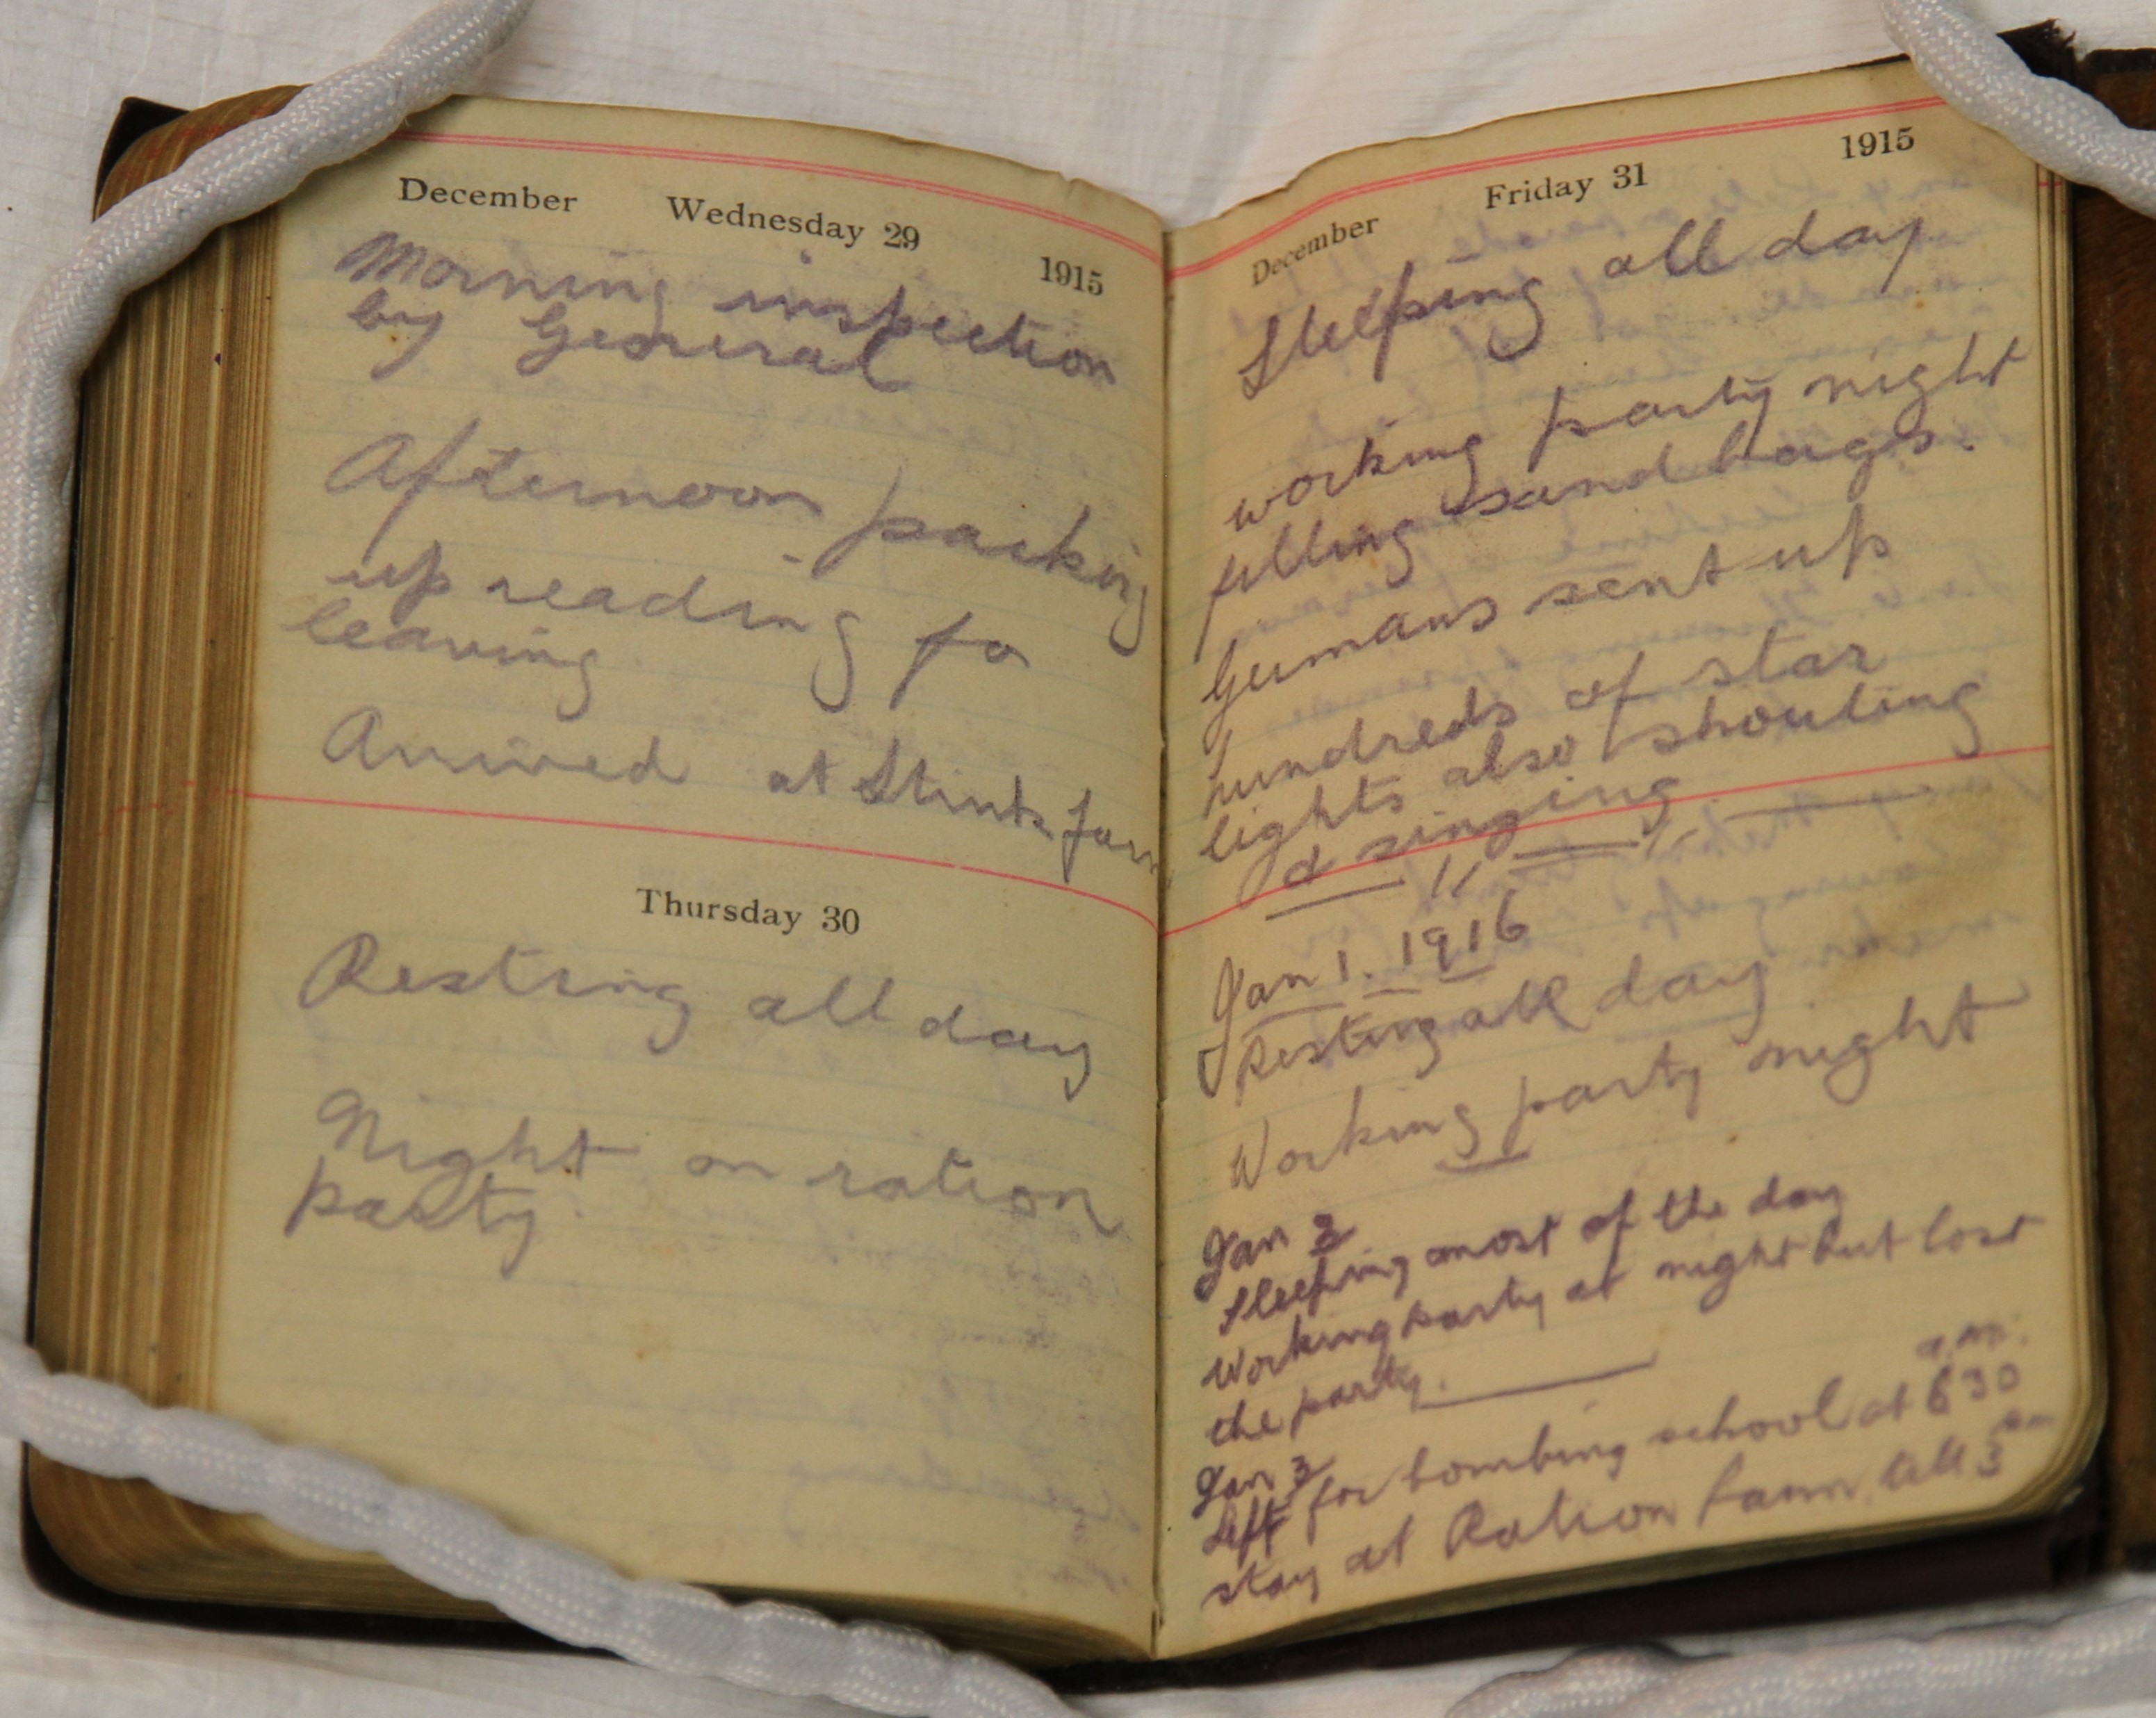 December Wednesday 29 1915
Morning inspection
by General
Afternoon packing
up reading fo
leaving
Arrived at Stinks farm
Thursday 30
Resting all day
Night on ration
party.
December Friday 31 1915
Sleeping all day
working party night
filling sand bags.
Germans sent up
hundreds of star
lights also shouting
d singing
Jan 1. 1916
Resting all day
Working party night
Jan 2
Sleeping most of the day
Working party at night but lost
the party.
Jan 3
a.m.
Left for bombing school at 6 30
stay at Ration Farm till 5 pm